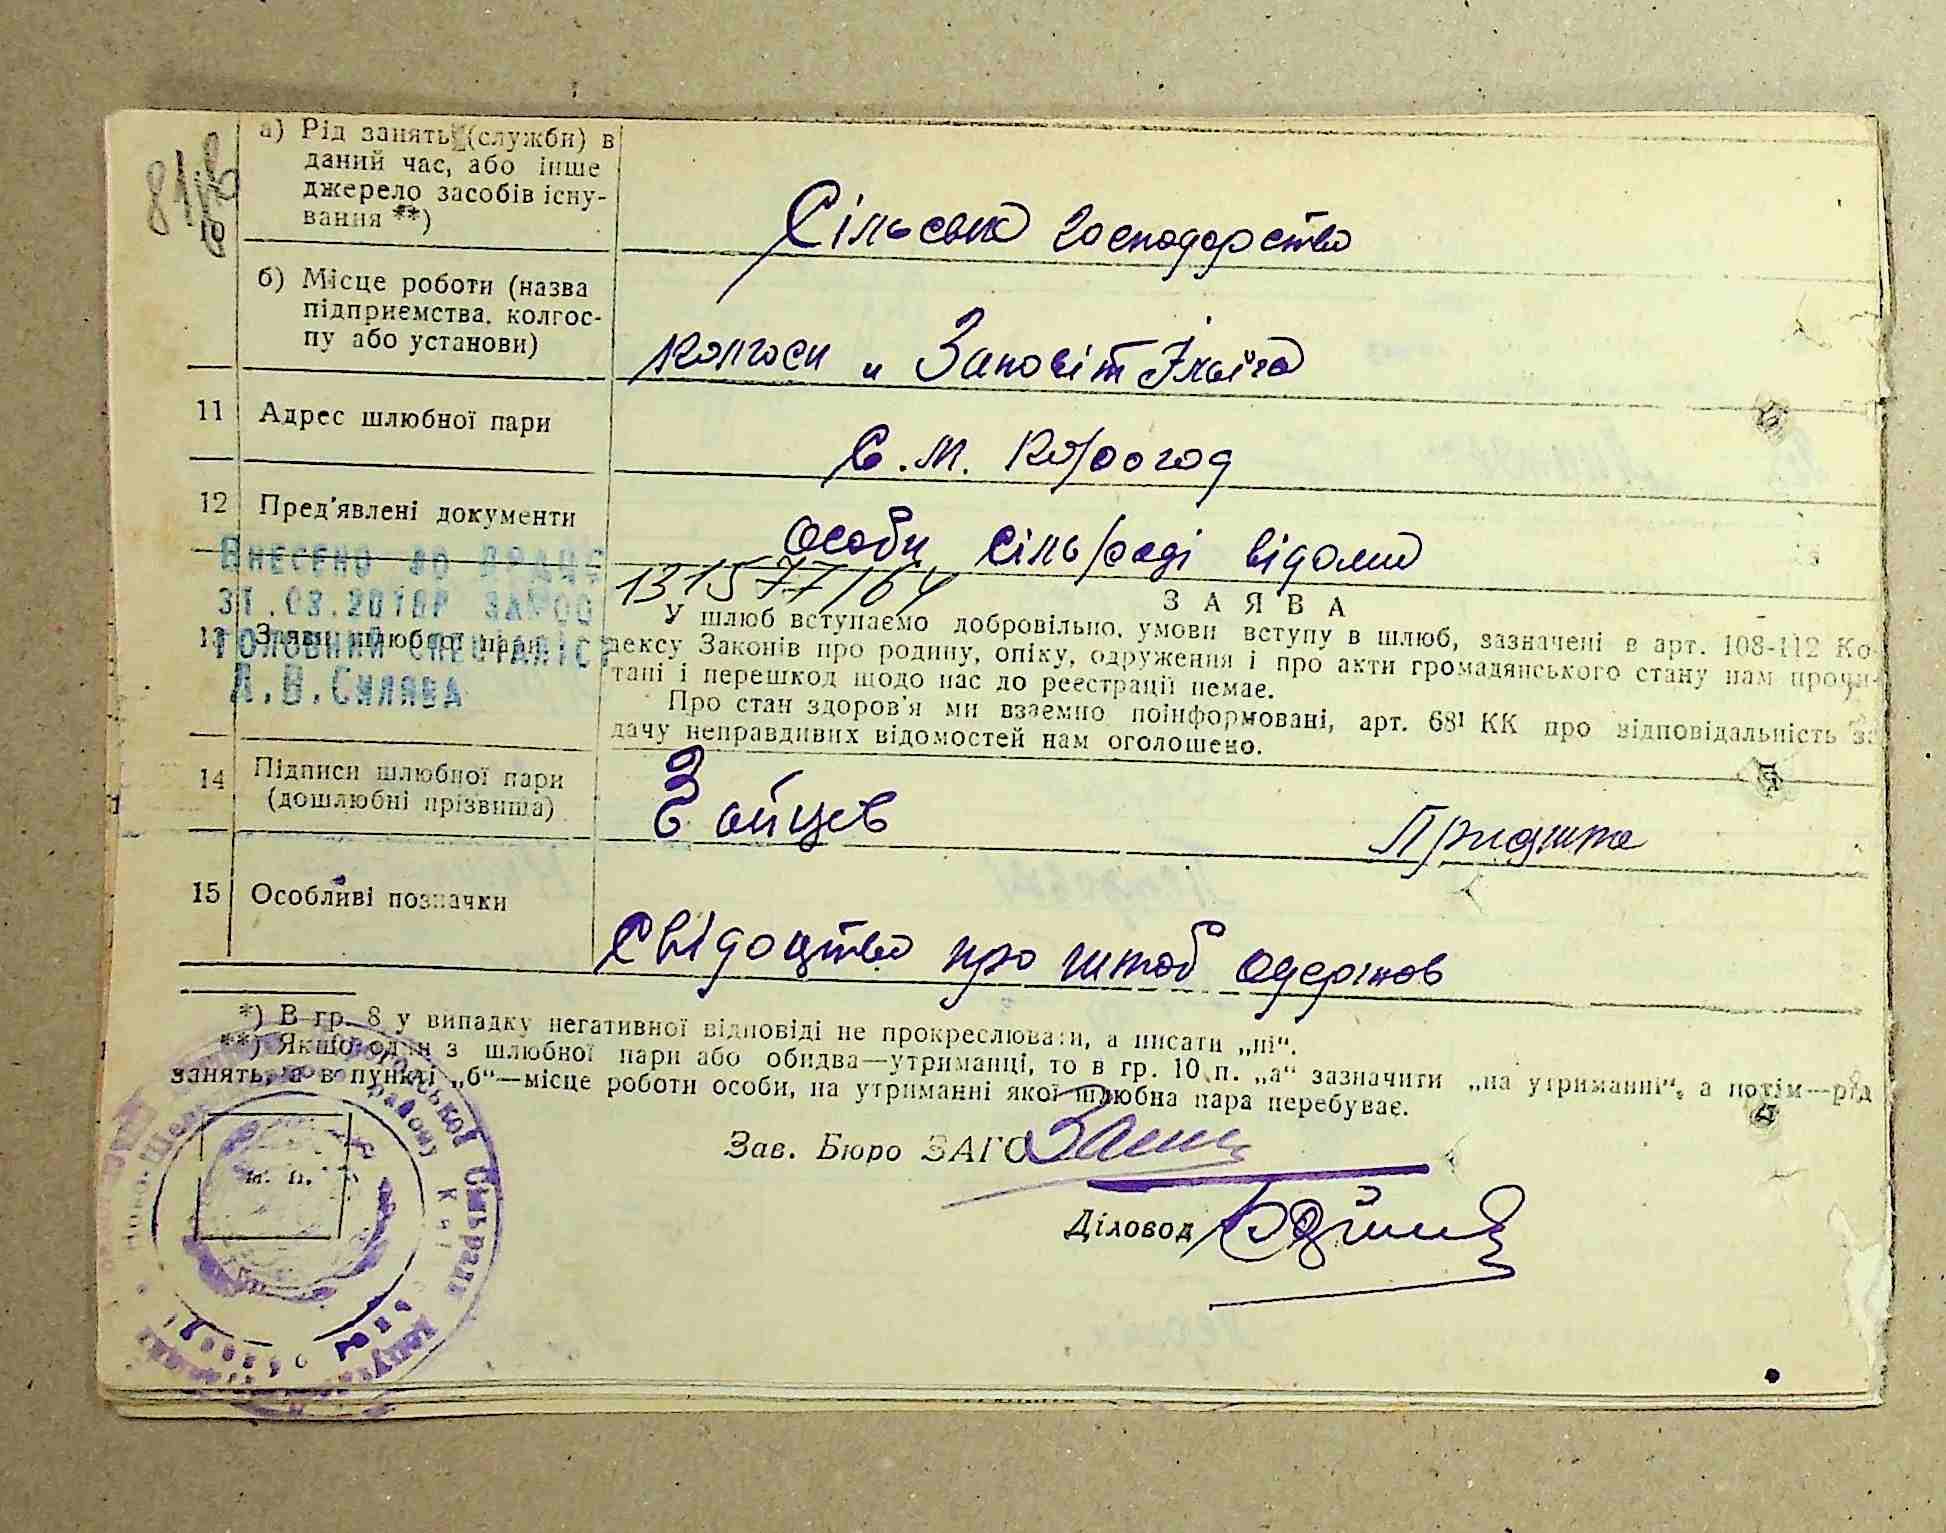 а) Рід занять (служби) в
даний час, або інше
джерело засобів існу-
вання **)
Сільське господарство
б) Місце роботи (назва
підприємства, колгос-
пу або установи)
колгосп „ Заповіт Ілліча
11 Адрес шлюбної пари
С. М. Корогод
12 Пред'явлені документи
особи сіль/раді відомі
Внесено до ДРАЦС
31.03.2016р
головний спеціаліст
131577764
13 Заяви шлюбної пари
З А Я В А
У шлюб вступаємо добровільно, умови вступу в шлюб, зазначені в арт. 108-112 Ко-
дексу Законів про родину, опіку, одруження і про акти громадянського стану нам прочи-
тані і перешкод щодо нас до реєстрації немає.
Про стан здоров'я ми взаємно поінформовані, арт. 68¹ КК про відповідальність за
дачу неправдивих відомостей нам оголошено.
14 Підписи шлюбної пари
(дошлюбні прізвища)
Зайцев
15 Особливі позначки
Свідоцтво про шлюб одержав
*) В гр. 8 у випадку негативної відповіді не прокреслювати, а писати „ні“.
**) Якщо один з шлюбної пари або обидва—утриманці, то в гр. 10 п. „а“ зазначити „на утриманні“, а потім—рід
занять, а в пункті „б“—місце роботи особи, на утриманні якої шлюбна пара перебуває.
Зав. Бюро ЗАГС
Діловод
м. п.